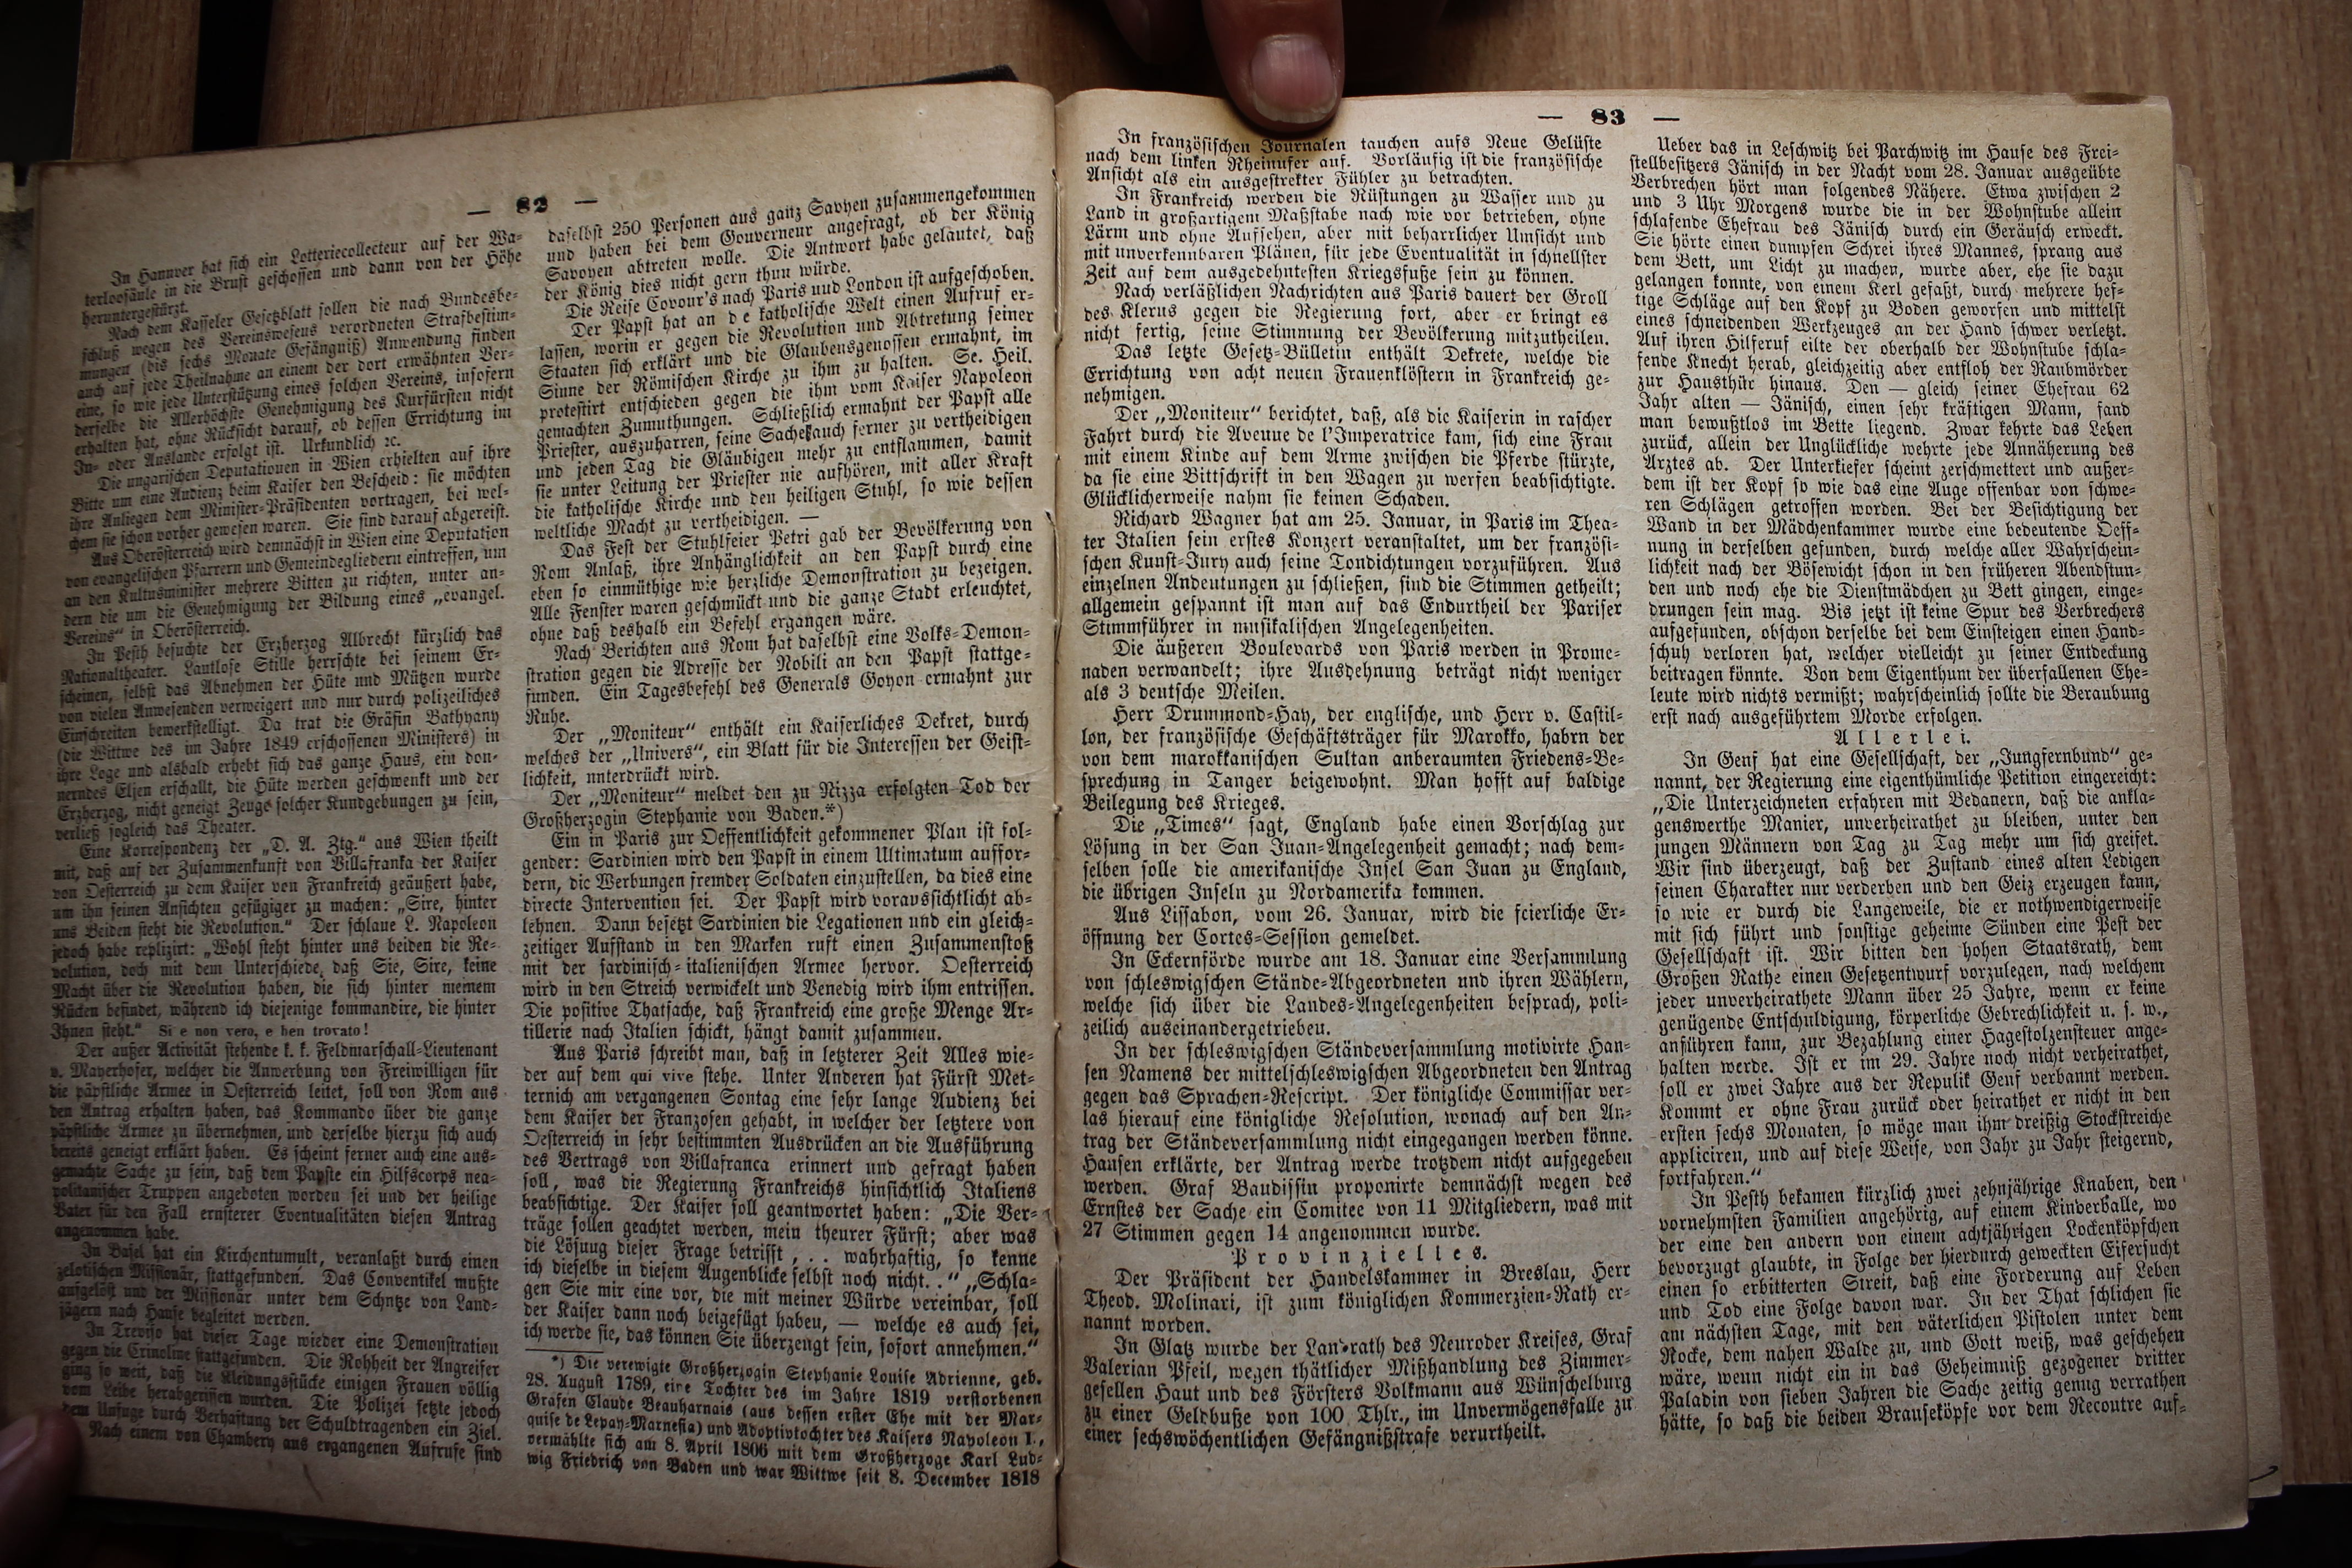 — 82 —
In Hannover hat sich ein Lotteriecollecteur auf der Wa-
terloosäule in die Brust geschossen und dann von der Höhe
heruntergestürzt.
Nach dem Kasseler Gesetzblatt sollen die nach Bundesbe-
schluß wegen des Vereinswesens verordneten Strafbestim-
mungen (bis sechs Monate Gefängniß) Anwendung finden
auch auf jede Theilnahme an einem der dort erwähnten Ver-
eine, so wie jede Unterstützung eines solchen Vereins, insofern
derselbe die Allerhöchste Genehmigung des Kurfürsten nicht
erhalten hat, ohne Rücksicht darauf, ob dessen Errichtung im
In- oder Auslande erfolgt ist. Urkundlich ꝛc.
Die ungarischen Deputationen in Wien erhielten auf ihre
Bitte um eine Audienz beim Kaiser den Bescheid: sie möchten
ihre Anliegen dem Minister-Präsidenten vortragen, bei wel-
chem sie schon vorher gewesen waren. Sie sind darauf abgereist.
Aus Oberösterreich wird demnächst in Wien eine Deputation
von evangelischen Pfarrern und Gemeindegliedern eintreffen, um
an den Kultusminister mehrere Bitten zu richten, unter an-
dern die um die Genehmigung der Bildung eines „evangel.
Vereins“ in Oberösterreich.
In Pesth besuchte der Erzherzog Albrecht kürzlich das
Nationaltheater. Lautlose Stille herrschte bei seinem Er-
scheinen, selbst das Abnehmen der Hüte und Mützen wurde
von vielen Anwesenden verweigert und nur durch polizeiliches
Einschreiten bewerkstelligt. Da trat die Gräfin Bathyany
(die Wittwe des im Jahre 1849 erschossenen Ministers) in
ihre Loge und alsbald erhebt sich das ganze Haus, ein don-
nerndes Eljen erschallt, die Hüte werden geschwenkt und der
Erzherzog, nicht geneigt Zeuge solcher Kundgebungen zu sein,
verließ sogleich das Theater.
Eine Korrespondenz der „D. A. Ztg.“ aus Wien theilt
mit, daß auf der Zusammenkunft von Villafranka der Kaiser
von Oesterreich zu dem Kaiser von Frankreich geäußert habe,
um ihn seinen Ansichten gefügiger zu machen: „Sire, hinter
uns Beiden steht die Revolution.“ Der schlaue L. Napoleon
jedoch habe replizirt: „Wohl steht hinter uns beiden die Re-
volution, doch mit dem Unterschiede, daß Sie, Sire, keine
Macht über die Revolution haben, die sich hinter meinem
Rücken befindet, während ich diejenige kommandire, die hinter
Ihnen steht.“ Si e non vero, e ben trovato!
Der außer Activität stehende k. k. Feldmarschall-Lieutenant
v. Mayerhofer, welcher die Anwerbung von Freiwilligen für
die päpstliche Armee in Oesterreich leitet, soll von Rom aus
den Antrag erhalten haben, das Kommando über die ganze
päpstliche Armee zu übernehmen, und derselbe hierzu sich auch
bereits geneigt erklärt haben. Es scheint ferner auch eine aus-
gemachte Sache zu sein, daß dem Papste ein Hilfscorps nea-
politanischer Truppen angeboten worden sei und der heilige
Vater für den Fall ernsterer Eventualitäten diesen Antrag
angenommen habe.
In Basel hat ein Kirchentumult, veranlaßt durch einen
zelotischen Missionär, stattgefunden. Das Conventikel mußte
aufgelöst und der Missionär unter dem Schutze von Land-
jägern nach Hause begleitet werden.
In Treviso hat dieser Tage wieder eine Demonstration
gegen die Crinoline stattgefunden. Die Rohheit der Angreifer
ging so weit, daß die Kleidungsstücke einigen Frauen völlig
vom Leibe herabgerissen wurden. Die Polizei setzte jedoch
dem Unfuge durch Verhaftung der Schuldtragenden ein Ziel.
Nach einem von Chambery aus ergangenen Aufrufe sind
daselbst 250 Personen aus ganz Savoyen zusammengekommen
und haben bei dem Gouverneur angefragt, ob der König
Savoyen abtreten wolle. Die Antwort habe geläutet, daß
der König dies nicht gern thun würde.
Die Reise Covour's nach Paris und London ist aufgeschoben.
Der Papst hat an de katholische Welt einen Aufruf er-
lassen, worin er gegen die Revolution und Abtretung seiner
Staaten sich erklärt und die Glaubensgenossen ermahnt, im
Sinne der Römischen Kirche zu ihm zu halten. Se. Heil.
protestirt entschieden gegen die ihm vom Kaiser Napoleon
gemachten Zumuthungen. Schließlich ermahnt der Papst alle
Priester, auszuharren, seine Sache auch ferner zu vertheidigen
und jeden Tag die Gläubigen mehr zu entflammen, damit
sie unter Leitung der Priester nie aufhören, mit aller Kraft
die katholische Kirche und den heiligen Stuhl, so wie dessen
weltliche Macht zu vertheidigen. —
Das Fest der Stuhlfeier Petri gab der Bevölkerung von
Rom Anlaß, ihre Anhänglichkeit an den Papst durch eine
eben so einmüthige wie herzliche Demonstration zu bezeigen.
Alle Fenster waren geschmückt und die ganze Stadt erleuchtet,
ohne daß deshalb ein Befehl ergangen wäre.
Nach Berichten aus Rom hat daselbst eine Volks-Demon-
stration gegen die Adresse der Nobili an den Papst stattge-
funden. Ein Tagesbefehl des Generals Goyon ermahnt zur
Ruhe.
Der „Moniteur“ enthält ein Kaiserliches Dekret, durch
welches der „Univers“, ein Blatt für die Interessen der Geist-
lichkeit, unterdrückt wird.
Der „Moniteur“ meldet den zu Nizza erfolgten Tod der
Großherzogin Stephanie von Baden.*)
Ein in Paris zur Oeffentlichkeit gekommener Plan ist fol-
gender: Sardinien wird den Papst in einem Ultimatum auffor-
dern, die Werbungen fremder Soldaten einzustellen, da dies eine
directe Intervention sei. Der Papst wird voraussichtlicht ab-
lehnen. Dann besetzt Sardinien die Legationen und ein gleich-
zeitiger Aufstand in den Marken ruft einen Zusammenstoß
mit der sardinisch-italienischen Armee hervor. Oesterreich
wird in den Streich verwickelt und Venedig wird ihm entrissen.
Die positive Thatsache, daß Frankreich eine große Menge Ar-
tillerie nach Italien schickt, hängt damit zusammen.
Aus Paris schreibt man, daß in letzterer Zeit Alles wie-
der auf dem qui vive stehe. Unter Anderen hat Fürst Met-
ternich am vergangenen Sontag eine sehr lange Audienz bei
dem Kaiser der Franzosen gehabt, in welcher der letztere von
Oesterreich in sehr bestimmten Ausdrücken an die Ausführung
des Vertrags von Villafranca erinnert und gefragt haben
soll, was die Regierung Frankreichs hinsichtlich Italiens
beabsichtige. Der Kaiser soll geantwortet haben: „Die Ver-
träge sollen geachtet werden, mein theurer Fürst; aber was
die Lösung dieser Frage betrifft , . . wahrhaftig, so kenne
ich dieselbe in diesem Augenblicke selbst noch nicht. .“ „Schla-
gen Sie mir eine vor, die mit meiner Würde vereinbar, soll
der Kaiser dann noch beigefügt haben, — welche es auch sei,
ich werde sie, das können Sie überzeugt sein, sofort annehmen.“
*) Die verewigte Großherzogin Stephanie Louise Adrienne, geb.
28. August 1789, eine Tochter des im Jahre 1819 verstorbenen
Grafen Claude Beauharnais (aus dessen erster Ehe mit der Mar-
quise de Lepay-Marnesia) und Adoptivtochter des Kaisers Napoleon I.,
vermählte sich am 8. April 1806 mit dem Großherzoge Karl Lud-
wig Friedrich von Baden und war Wittwe seit 8. December 1818
— 83 —
In französischen Journalen tauchen aufs Neue Gelüste
nach dem linken Rheinufer auf. Vorläufig ist die französische
Ansicht als ein ausgestrekter Fühler zu betrachten.
In Frankreich werden die Rüstungen zu Wasser und zu
Land in großartigem Maßstabe nach wie vor betrieben, ohne
Lärm und ohne Aufsehen, aber mit beharrlicher Umsicht und
mit unverkennbaren Plänen, für jede Eventualität in schnellster
Zeit auf dem ausgedehntesten Kriegsfuße sein zu können.
Nach verläßlichen Nachrichten aus Paris dauert der Groll
des Klerus gegen die Regierung fort, aber er bringt es
nicht fertig, seine Stimmung der Bevölkerung mitzutheilen.
Das letzte Gesetz-Bülletin enthält Dekrete, welche die
Errichtung von acht neuen Frauenklöstern in Frankreich ge-
nehmigen.
Der „Moniteur“ berichtet, daß, als die Kaiserin in rascher
Fahrt durch die Avenue de l'Imperatrice kam, sich eine Frau
mit einem Kinde auf dem Arme zwischen die Pferde stürzte,
da sie eine Bittschrift in den Wagen zu werfen beabsichtigte.
Glücklicherweise nahm sie keinen Schaden.
Richard Wagner hat am 25. Januar, in Paris im Thea-
ter Italien sein erstes Konzert veranstaltet, um der französi-
schen Kunst-Jury auch seine Tondichtungen vorzuführen. Aus
einzelnen Andeutungen zu schließen, sind die Stimmen getheilt;
allgemein gespannt ist man auf das Endurtheil der Pariser
Stimmführer in musikalischen Angelegenheiten.
Die äußeren Boulevards von Paris werden in Prome-
naden verwandelt; ihre Ausdehnung beträgt nicht weniger
als 3 deutsche Meilen.
Herr Drummond-Hay, der englische, und Herr v. Castil-
lon, der französische Geschäftsträger für Marokko, habrn der
von dem marokkanischen Sultan anberaumten Friedens-Be-
sprechung in Tanger beigewohnt. Man hofft auf baldige
Beilegung des Krieges.
Die „Times“ sagt, England habe einen Vorschlag zur
Lösung in der San Juan-Angelegenheit gemacht; nach dem-
selben solle die amerikanische Insel San Juan zu England,
die übrigen Inseln zu Nordamerika kommen.
Aus Lissabon, vom 26. Januar, wird die feierliche Er-
öffnung der Cortes-Session gemeldet.
In Eckernförde wurde am 18. Januar eine Versammlung
von schleswigschen Stände-Abgeordneten und ihren Wählern,
welche sich über die Landes-Angelegenheiten besprach, poli-
zeilich auseinandergetrieben.
In der schleswigschen Ständeversammlung motivirte Han-
sen Namens der mittelschleswigschen Abgeordneten den Antrag
gegen das Sprachen-Rescript. Der königliche Commissar ver-
las hierauf eine königliche Resolution, wonach auf den An-
trag der Ständeversammlung nicht eingegangen werden könne.
Hansen erklärte, der Antrag werde trotzdem nicht aufgegeben
werden. Graf Baudissin proponirte demnächst wegen des
Ernstes der Sache ein Comitee von 11 Mitgliedern, was mit
27 Stimmen gegen 14 angenommen wurde.
Provinzielles.
Der Präsident der Handelskammer in Breslau, Herr
Theod. Molinari, ist zum königlichen Kommerzien-Rath er-
nannt worden.
In Glatz wurde der Landrath des Neuroder Kreises, Graf
Valerian Pfeil, wegen thätlicher Mißhandlung des Zimmer-
gesellen Haut und des Försters Volkmann aus Wünschelburg
zu einer Geldbuße von 100 Thlr., im Unvermögensfalle zu
einer sechswöchentlichen Gefängnißstrafe verurtheilt.
Ueber das in Leschwitz bei Parchwitz im Hause des Frei-
stellbesitzers Jänisch in der Nacht vom 28. Januar ausgeübte
Verbrechen hört man folgendes Nähere. Etwa zwischen 2
und 3 Uhr Morgens wurde die in der Wohnstube allein
schlafende Ehefrau des Jänisch durch ein Geräusch erweckt.
Sie hörte einen dumpfen Schrei ihres Mannes, sprang aus
dem Bett, um Licht zu machen, wurde aber, ehe sie dazu
gelangen konnte, von einem Kerl gefaßt, durch mehrere hef-
tige Schläge auf den Kopf zu Boden geworfen und mittelst
eines schneidenden Werkzeuges an der Hand schwer verletzt.
Auf ihren Hilferuf eilte der oberhalb der Wohnstube schla-
fende Knecht herab, gleichzeitig aber entfloh der Raubmörder
zur Hausthür hinaus. Den — gleich seiner Ehefrau 62
Jahr alten — Jänisch, einen sehr kräftigen Mann, fand
man bewußtlos im Bette liegend. Zwar kehrte das Leben
zurück, allein der Unglückliche wehrte jede Annäherung des
Arztes ab. Der Unterkiefer scheint zerschmettert und außer-
dem ist der Kopf so wie das eine Auge offenbar von schwe-
ren Schlägen getroffen worden. Bei der Besichtigung der
Wand in der Mädchenkammer wurde eine bedeutende Oeff-
nung in derselben gefunden, durch welche aller Wahrschein-
lichkeit nach der Bösewicht schon in den früheren Abendstun-
den und noch ehe die Dienstmädchen zu Bett gingen, einge-
drungen sein mag. Bis jetzt ist keine Spur des Verbrechers
aufgefunden, obschon derselbe bei dem Einsteigen einen Hand-
schuh verloren hat, welcher vielleicht zu seiner Entdeckung
beitragen könnte. Von dem Eigenthum der überfallenen Ehe-
leute wird nichts vermißt; wahrscheinlich sollte die Beraubung
erst nach ausgeführtem Morde erfolgen.
Allerlei.
In Genf hat eine Gesellschaft, der „Jungfernbund“ ge-
nannt, der Regierung eine eigenthümliche Petition eingereicht:
„Die Unterzeichneten erfahren mit Bedanern, daß die ankla-
genswerthe Manier, unverheirathet zu bleiben, unter den
jungen Männern von Tag zu Tag mehr um sich greifet.
Wir sind überzeugt, daß der Zustand eines alten Ledigen
seinen Charakter nur verderben und den Geiz erzeugen kann,
so wie er durch die Langeweile, die er nothwendigerweise
mit sich führt und sonstige geheime Sünden eine Pest der
Gesellschaft ist. Wir bitten den hohen Staatsrath, dem
Großen Rathe einen Gesetzentwurf vorzulegen, nach welchem
jeder unverheirathete Mann über 25 Jahre, wenn er keine
genügende Entschuldigung, körperliche Gebrechlichkeit u. s. w.,
anführen kann, zur Bezahlung einer Hagestolzensteuer ange-
halten werde. Ist er im 29. Jahre noch nicht verheirathet,
soll er zwei Jahre aus der Repulik Genf verbannt werden.
Kommt er ohne Frau zurück oder heirathet er nicht in den
ersten sechs Monaten, so möge man ihm dreißig Stockstreiche
appliciren, und auf diese Weise, von Jahr zu Jahr steigernd,
fortfahren.“
In Pesth bekamen kürzlich zwei zehnjährige Knaben, den
vornehmsten Familien angehörig, auf einem Kinderballe, wo
der eine den andern von einem achtjährigen Lockenköpfchen
bevorzugt glaubte, in Folge der hierdurch geweckten Eifersucht
einen so erbitterten Streit, daß eine Forderung auf Leben
und Tod eine Folge davon war. In der That schlichen sie
am nächsten Tage, mit den väterlichen Pistolen unter dem
Rocke, dem nahen Walde zu, und Gott weiß, was geschehen
wäre, wenn nicht ein in das Geheimniß gezogener dritter
Paladin von sieben Jahren die Sache zeitig genug verrathen
hätte, so daß die beiden Brauseköpfe vor dem Recoutre auf-